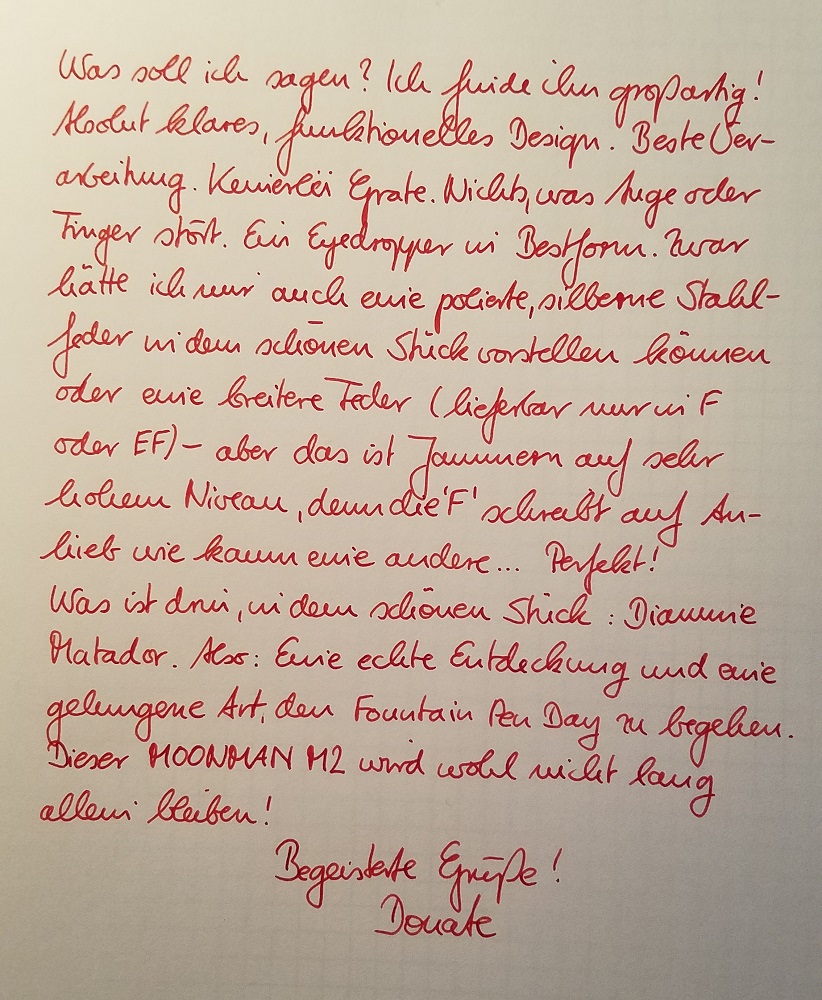 Was soll ich sagen? Ich finde ihn großartig!
Absolut klares, funktionelles Design. Beste Ver-
arbeitung. Keinerlei Grate. Nichts, was Auge oder
Finger stört. Ein Eyedropper in Bestform. Zwar
hätte ich mir auch eine polierte, silberne Stahl-
feder in dem schönen Stück vorstellen können
oder eine breitere Feder (lieferbar nur in F
oder EF) – aber das ist Jammern auf sehr
hohem Niveau, denn die 'F' schreibt auf An-
hieb wie kaum eine andere... Perfekt!
Was ist drin, in dem schönen Stück: Diamine
Matador. Also: Eine echte Entdeckung und eine
gelungene Art, den Fountain Pen Day zu begehen.
Dieser MOONMAN M2 wird wohl nicht lang
allein bleiben!
Begeisterte Grüße!
Donate